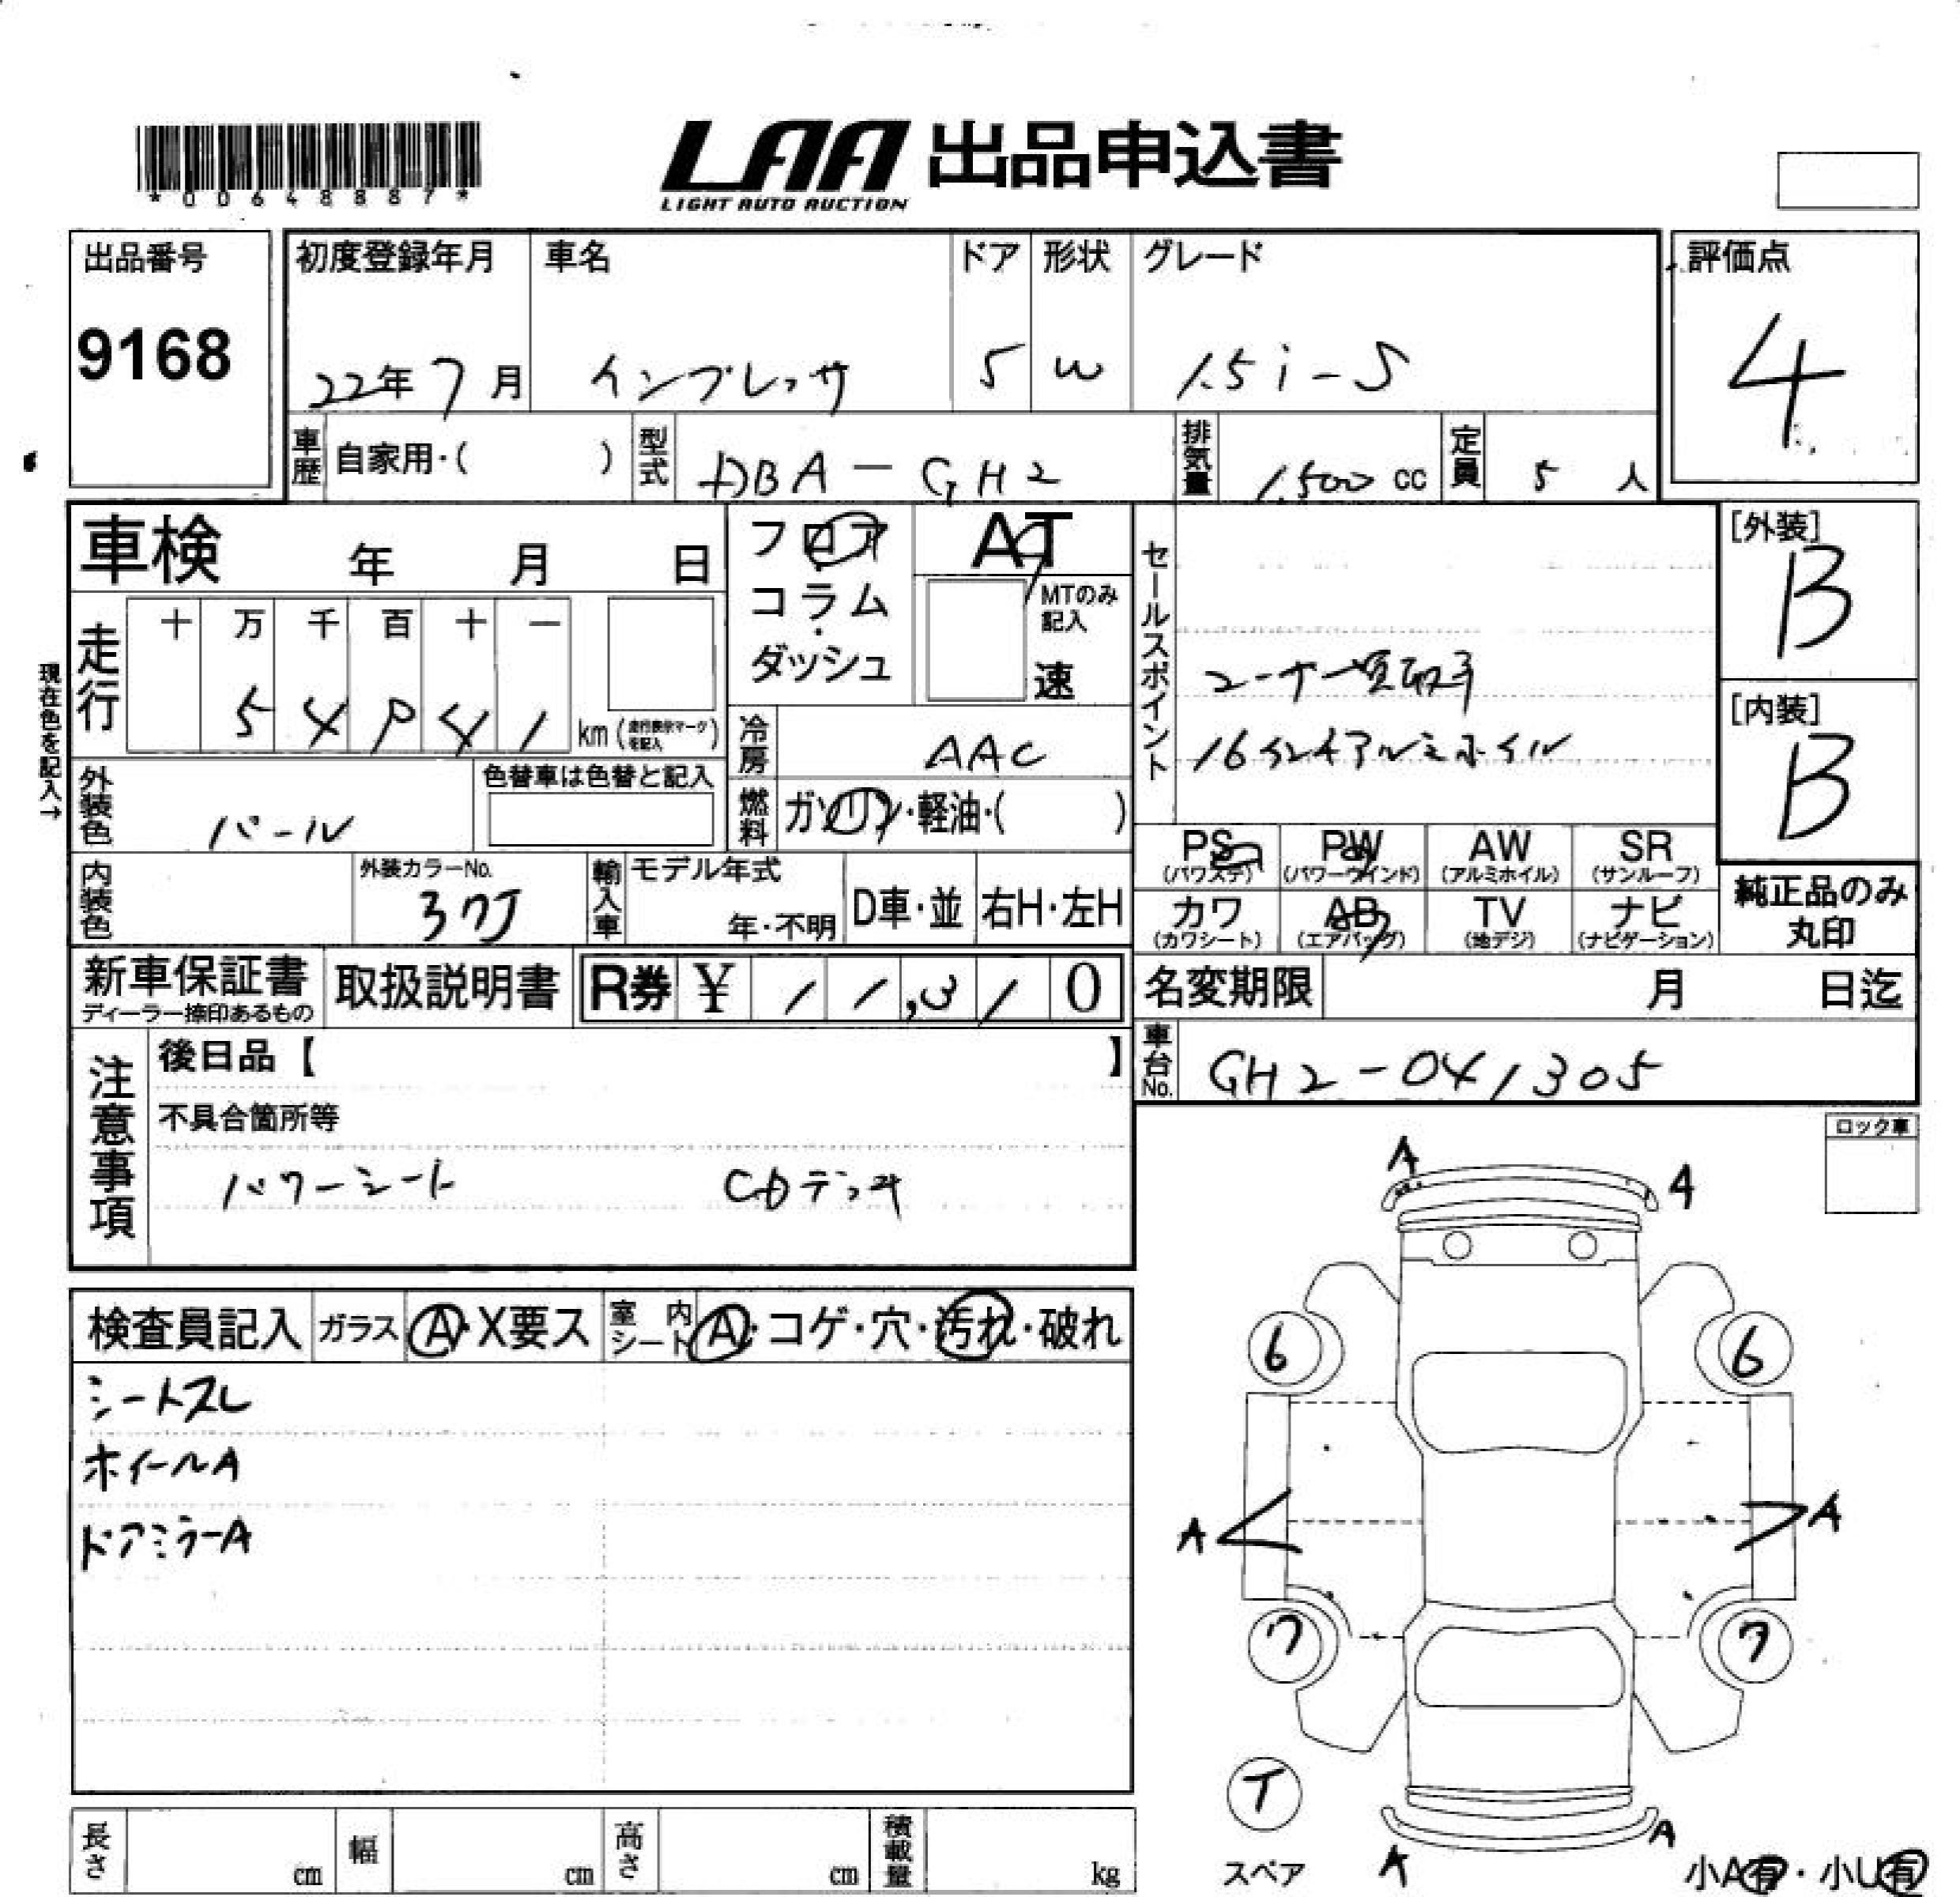 *00648887*
LAA 出品申込書
LIGHT AUTO AUCTION
出品番号
9168
初度登録年月 車名 ドア 形状 グレード
22年7月 インプレッサ 5 W 1.5i-S
評価点
4
車歴 自家用・( ) 型式 DBA-GH2 排気量 1,500 cc 定員 5 人
車検 年 月 日
フロア・コラム・ダッシュ
AT
MTのみ記入
速
セールスポイント
ユーザー買取車
16インチアルミホイル
[外装]
B
[内装]
B
現在色を記入→
走行 十 万 千 百 十 一
5 4 9 4 1 km (走行表示マークを記入)
冷房 AAC
燃料 ガソリン・軽油・( )
外装色 パール
色替車は色替と記入
PS (パワステ) PW (パワーウインド) AW (アルミホイル) SR (サンルーフ)
カワ (カワシート) AB (エアバッグ) TV (地デジ) ナビ (ナビゲーション)
純正品のみ丸印
内装色
外装カラーNo.
37J
輸入車 モデル年式 年・不明 D車・並 右H・左H
新車保証書
ディーラー捺印あるもの
取扱説明書
R券 ¥ 11,310
名変期限 月 日迄
車台No. GH2-041305
注意事項
後日品【 】
不具合箇所等
パワーシート CDデッキ
ロック車
検査員記入 ガラス A・X要ス 室内シート A・コゲ・穴・汚れ・破れ
シートスレ
ホイールA
ドアミラーA
A A
6 6
A A
7 7
T
スペア
A A
小A有・小U有
長さ cm 幅 cm 高さ cm 積載量 kg